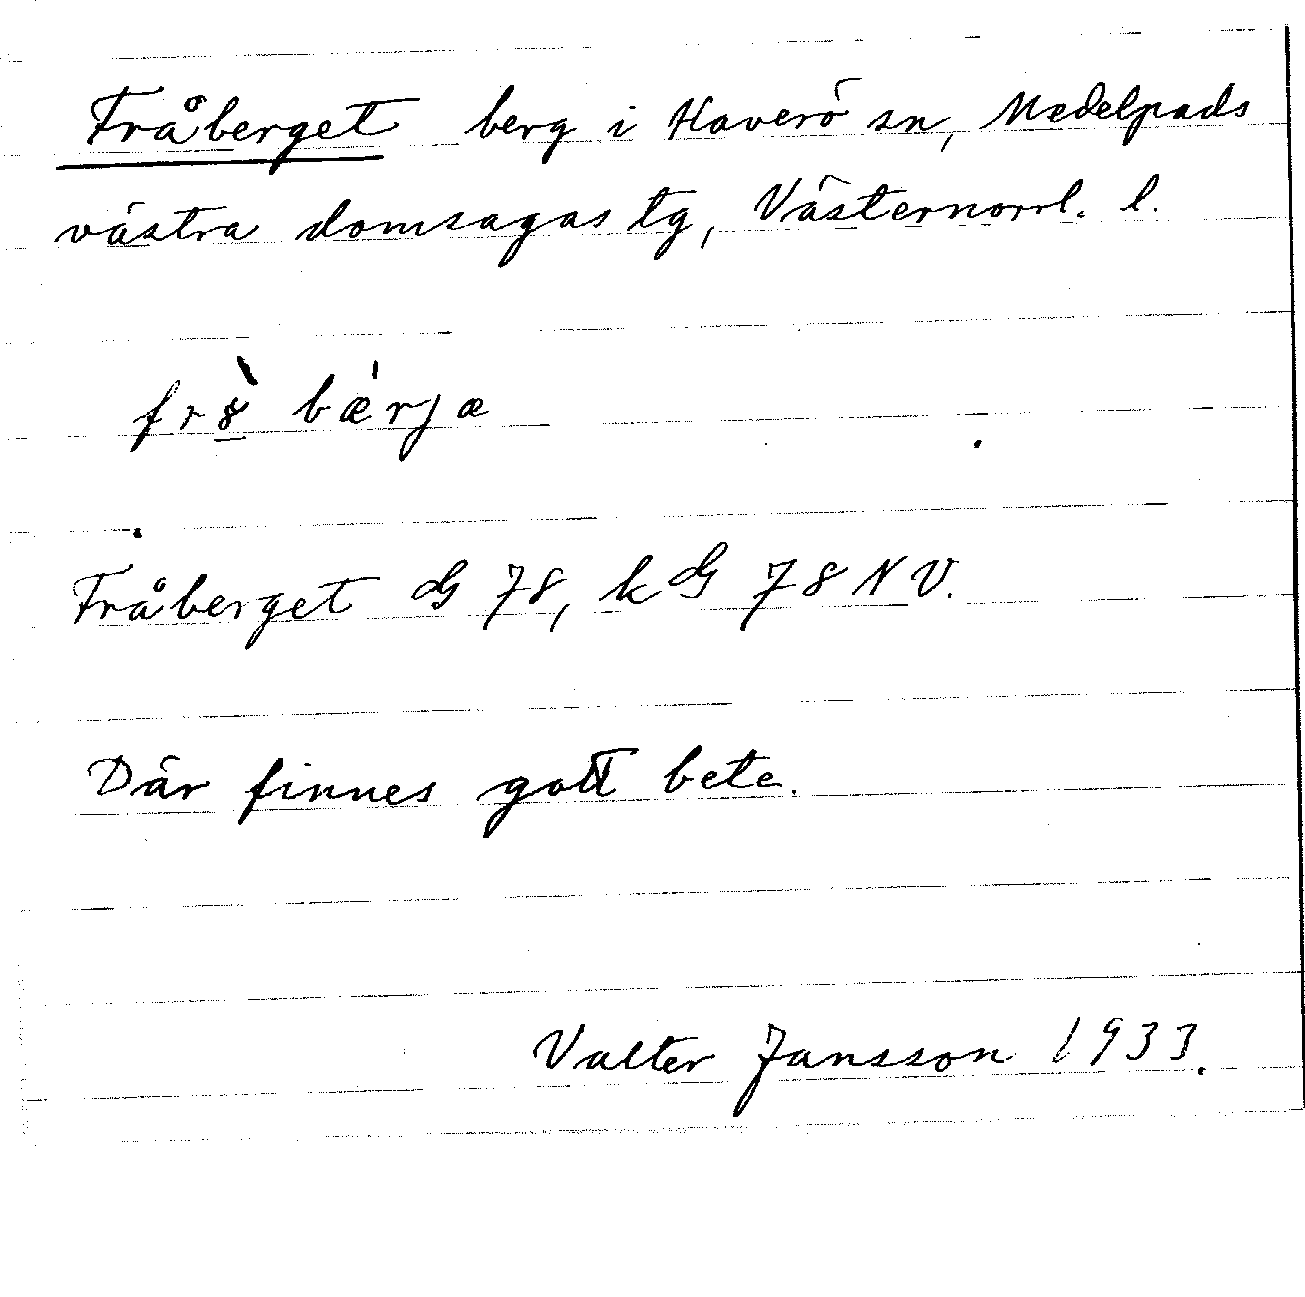 Fråberget berg i Haverö sn, Medelpads
västra domsagas tg, Västernorrl. l.
frò̱ bǽrjæ
Fråberget dG 78, k dG 78 NV.
Där finnes gott bete.
Valter Jansson 1933.